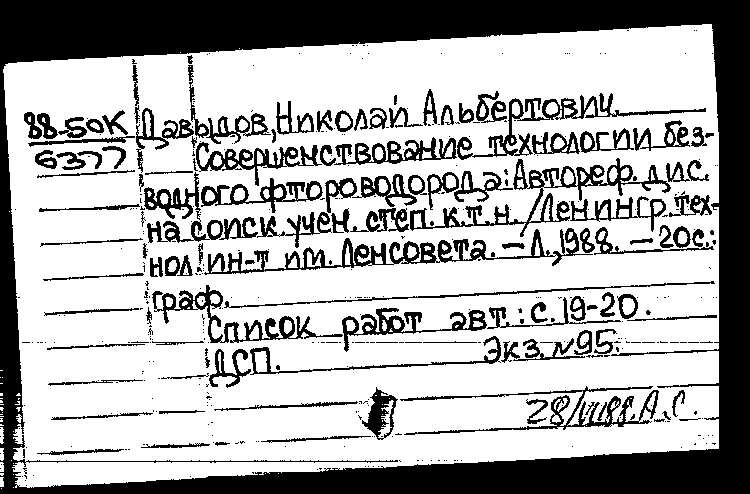 88-50К Давыдов, Николай Альбертович.
6377 Совершенствование технологии без-
водного фтороводорода: Автореф. дис.
на соиск. учен. степ. к.т.н. /Ленингр. тех-
нол. ин-т им. Ленсовета. – Л., 1988. – 20с.:
граф.
Список работ авт.: с. 19-20.
ДСП. Экз. №95.
28/VII88. А.С.